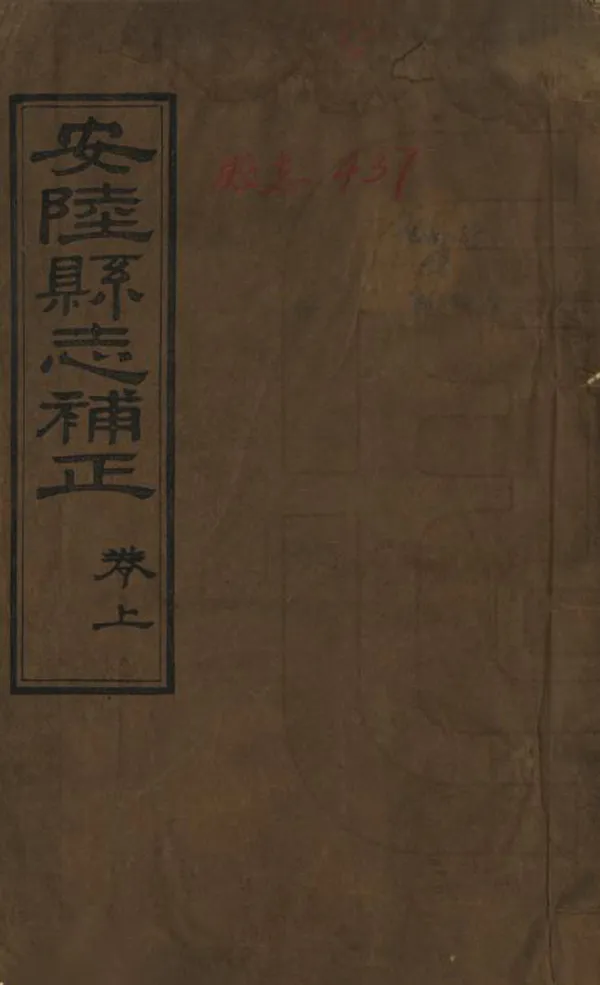 安陸縣志補正
卷上
437